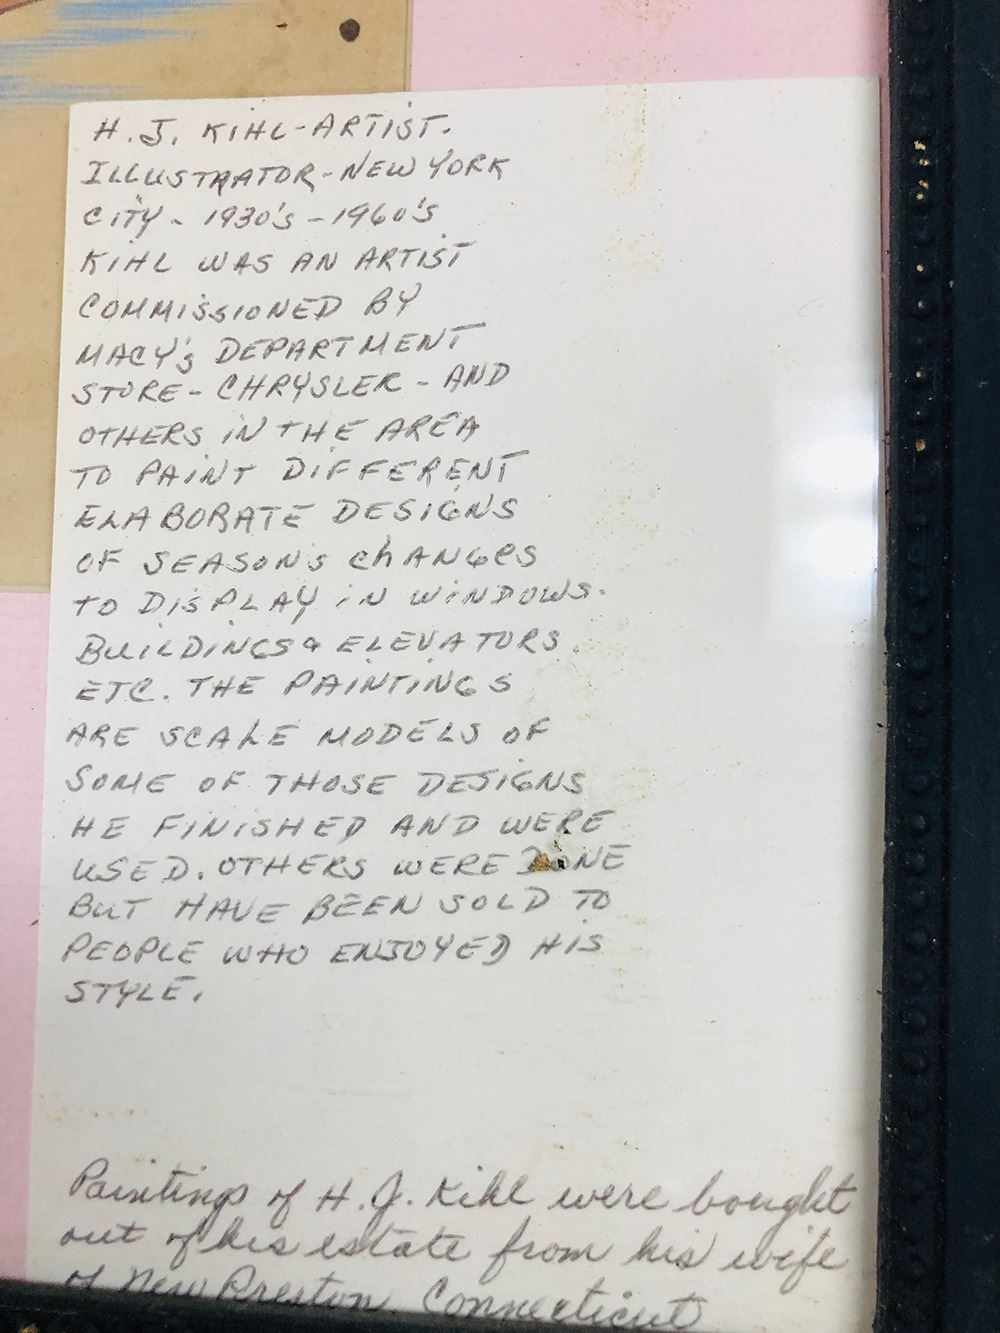 H. J. KIHL-ARTIST.
ILLUSTRATOR-NEW YORK
CITY - 1930's - 1960's
KIHL WAS AN ARTIST
COMMISSIONED BY
MACY's DEPARTMENT
STORE - CHRYSLER - AND
OTHERS IN THE AREA
TO PAINT DIFFERENT
ELABORATE DESIGNS
OF SEASONS ChANGes
TO DISPLAY IN WINDOWS.
BUILDINGS & ELEVATORS
ETC. THE PAINTINGS
ARE SCALE MODELS OF
SOME OF THOSE DESIGNS
HE FINISHED AND WERE
USED. OTHERS WERE DONE
BUT HAVE BEEN SOLD TO
PEOPLE WHO ENJOYED HIS
STYLE.
Paintings of H. J. Kihl were bought
out of his estate from his wife
of New Preston, Connecticut